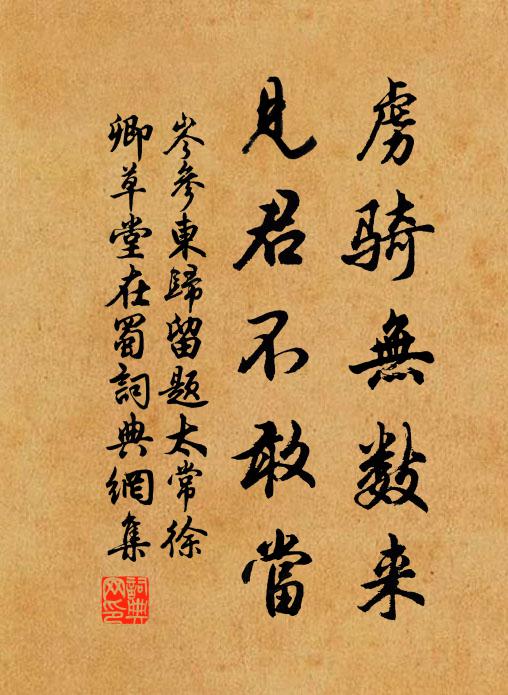 虜騎無數来
見君不敢當
岑參東歸留題太常徐
卿草堂在蜀詞典網集
詞典
网印